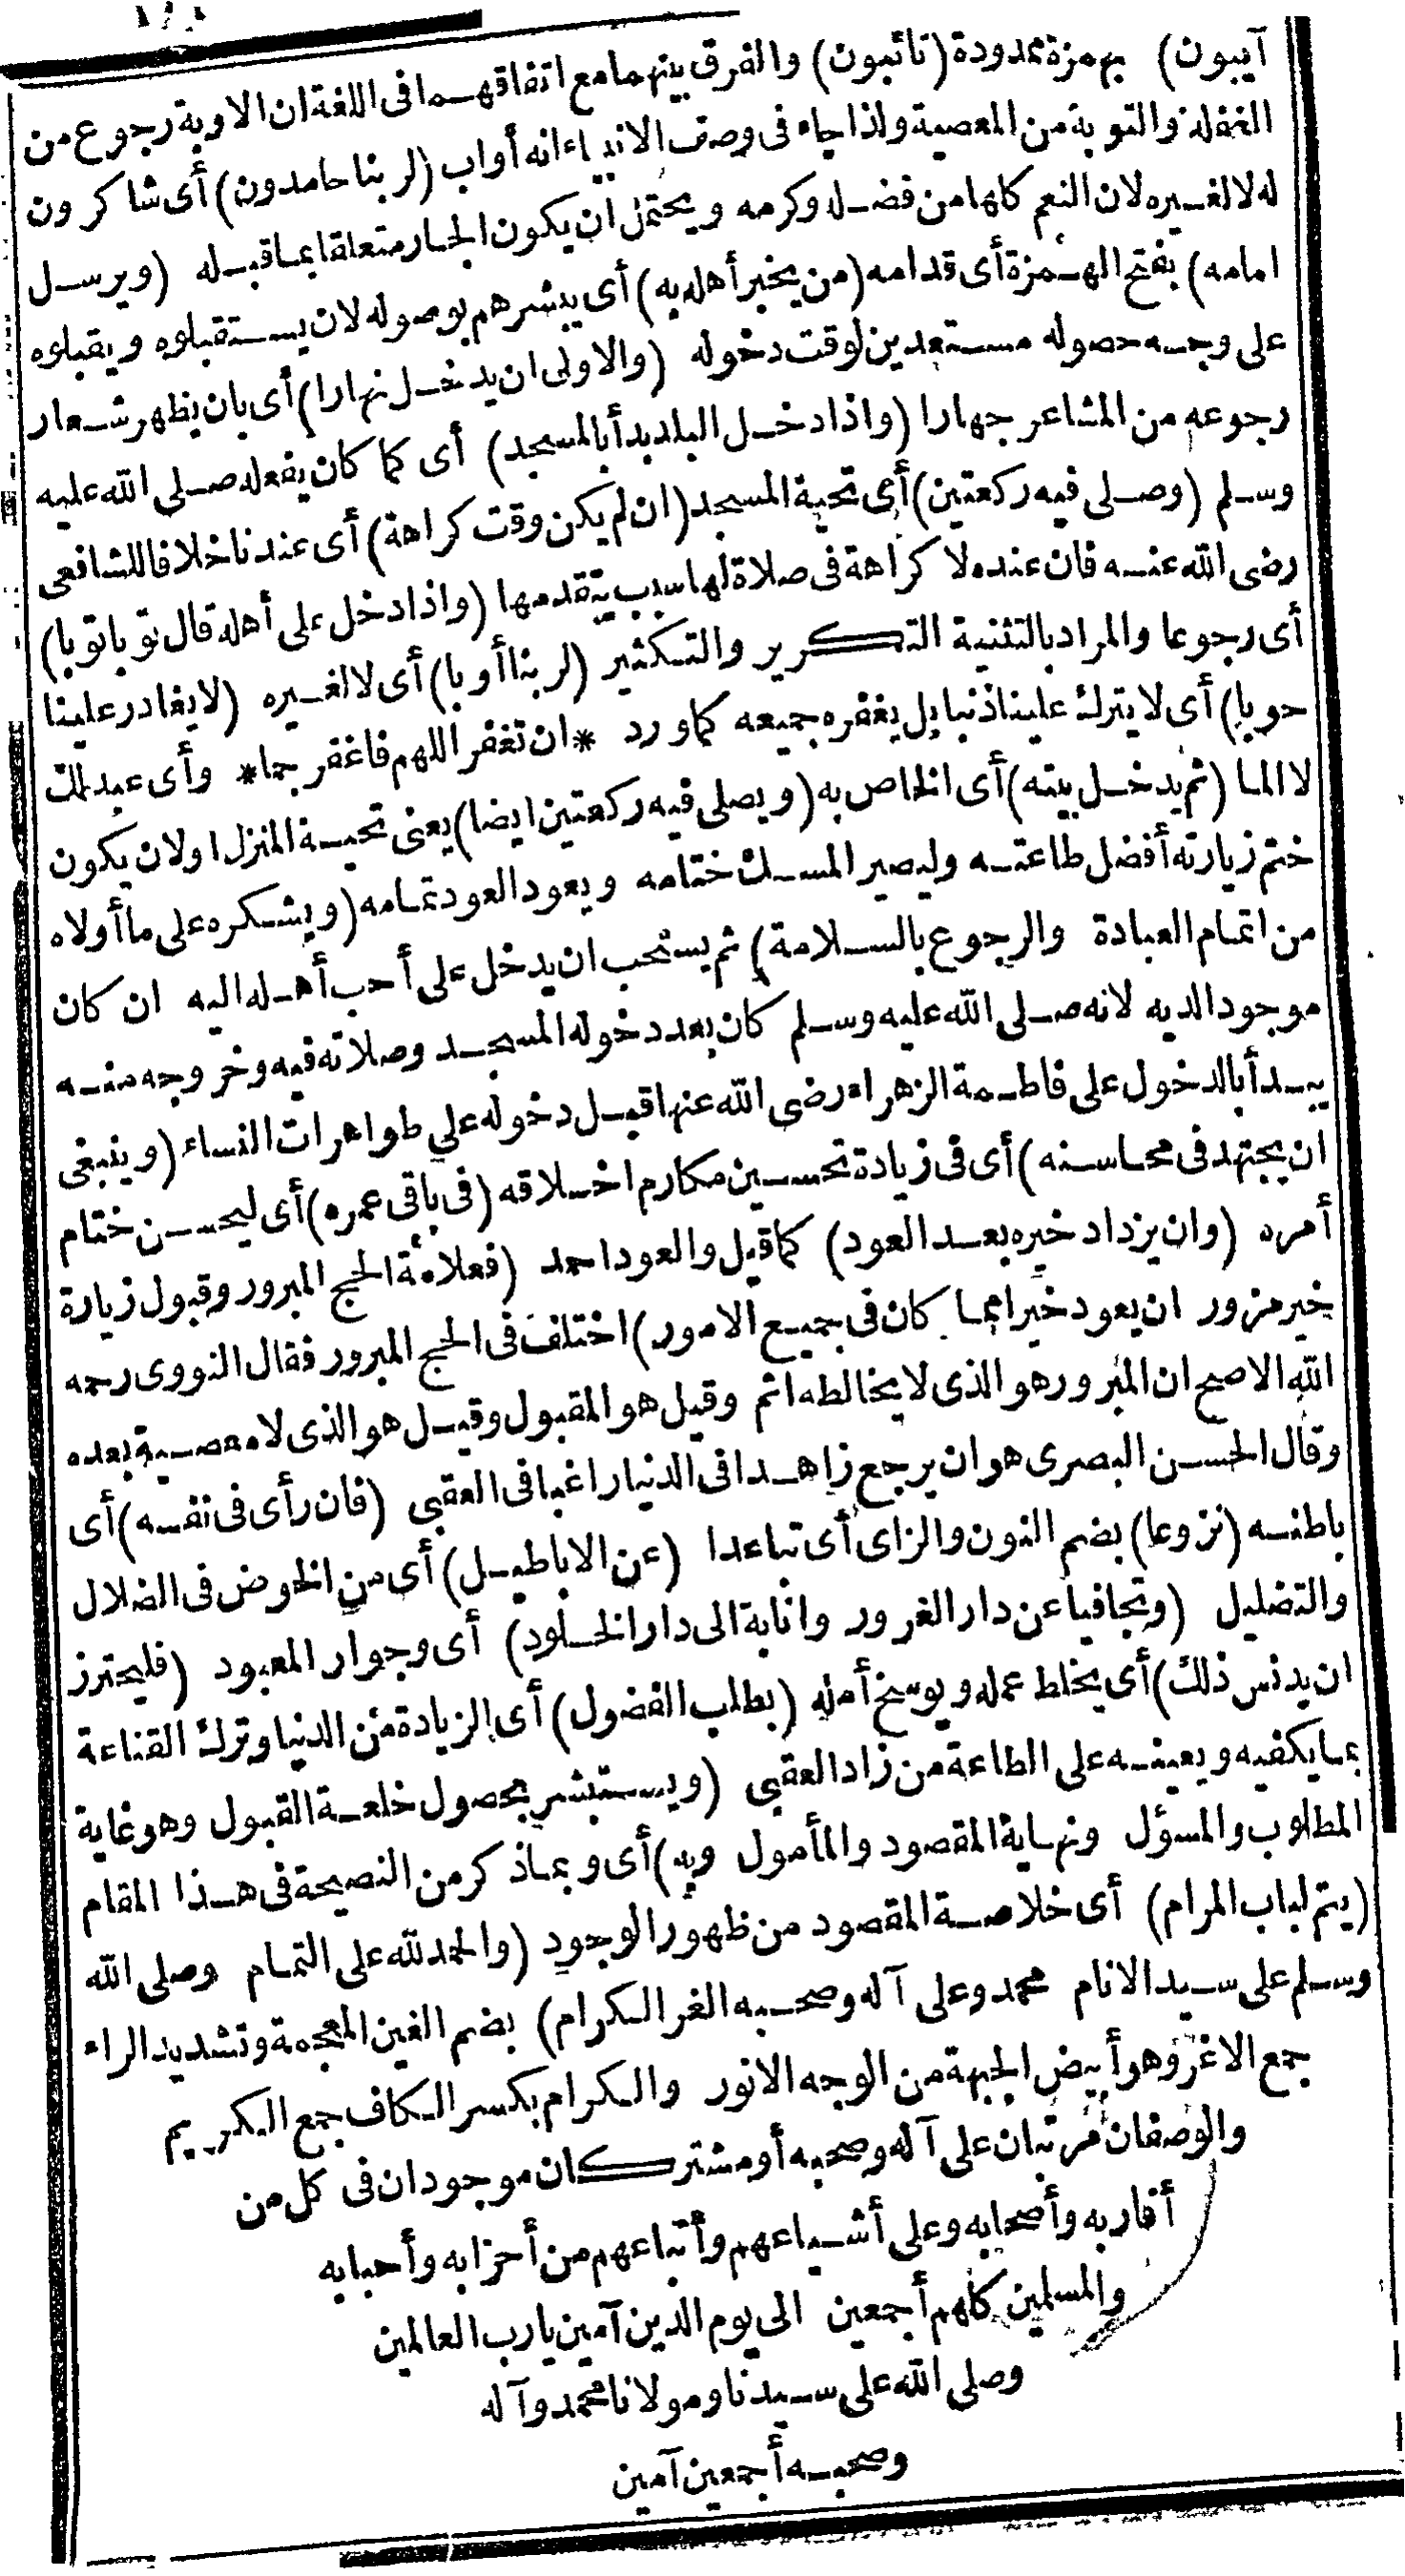 آيبون) بهمزة ممدودة (تائبون) والفرق بينهما مع اتفاقهما فى اللغة ان الاوبة رجوع من
الغفلة والتوبة من المعصية ولذا جاء فى وصف الانبياء انه أواب (لربنا حامدون) أى شاكرون
له لا لغيره لان النعم كلها من فضله وكرمه ويحتمل ان يكون الجار متعلقا بما قبله (ويرسل
امامه) بفتح الهمزة أى قدامه (من يخبر أهله به) أى يبشرهم بوصوله لان يستقبلوه ويقبلوه
على وجه حصوله مستعدين لوقت دخوله (والاولى ان يدخل نهارا) أى بان يظهر شعار
رجوعه من المشاعر جهارا (واذا دخل البلد بدأ بالمسجد) أى كما كان يفعله صلى الله عليه
وسلم (وصلى فيه ركعتين) أى تحية المسجد (ان لم يكن وقت كراهة) أى عندنا خلافا للشافعى
رضى الله عنه فان عنده لا كراهة فى صلاة لها سبب يتقدمها (واذا دخل على أهله قال توبا توبا)
أى رجوعا والمراد بالتثنية التكرير والتكثير (لربنا أوبا) أى لا لغيره (لا يغادر علينا
حوبا) أى لا يترك علينا ذنبا بل يغفره جميعه كما ورد * ان تغفر اللهم فاغفر جما * وأى عبد لك
لا الما (ثم يدخل بيته) أى الخاص به (ويصلى فيه ركعتين ايضا) يعنى تحية المنزل اولان يكون
ختم زيارته أفضل طاعته وليصير المسك ختامه ويعود العود تمامه (ويشكره على ما أولاه
من اتمام العبادة والرجوع بالسلامة) ثم يستحب ان يدخل على أحب أهله اليه ان كان
موجودا لديه لانه صلى الله عليه وسلم كان بعد دخوله المسجد وصلاته فيه وخروجه منه
يبدأ بالدخول على فاطمة الزهراء رضى الله عنها قبل دخوله على طواهرات النساء (وينبغى
ان يجتهد فى محاسنه) أى فى زيادة تحسين مكارم اخلاقه (فى باقى عمره) أى ليحسن ختام
أمره (وان يزداد خيره بعد العود) كما قيل والعود احمد (فعلامة الحج المبرور وقبول زيارة
خير مزور ان يعود خيرا مما كان فى جميع الامور) اختلف فى الحج المبرور فقال النووى رحمه
الله الاصح ان المبرور هو الذى لا يخالطه اثم وقيل هو المقبول وقيل هو الذى لا معصية بعده
وقال الحسن البصرى هو ان يرجع زاهدا فى الدنيا راغبا فى العقبى (فان رأى فى نفسه) أى
باطنه (نزوعا) بضم النون والزاى أى تباعدا (عن الاباطيل) أى من الخوض فى الضلال
والتضليل (وتجافيا عن دار الغرور وانابة الى دار الخلود) أى وجوار المعبود (فليحترز
ان يدنس ذلك) أى يخلط عمله ويوسخ أمله (بطلب الفضول) أى الزيادة من الدنيا وترك القناعة
بما يكفيه ويعينه على الطاعة من زاد العقبى (ويستبشر بحصول خلعة القبول وهو غاية
المطلوب والمسؤل ونهاية المقصود والمأمول وبه) أى وبما ذكر من النصيحة فى هذا المقام
(يتم لباب المرام) أى خلاصة المقصود من ظهور الوجود (والحمد لله على التمام وصلى الله
وسلم على سيد الانام محمد وعلى آله وصحبه الغر الكرام) بضم الغين المعجمة وتشديد الراء
جمع الاغر وهو أبيض الجبهة من الوجه الانور والكرام بكسر الكاف جمع الكريم
والوصفان مرتبان على آله وصحبه أو مشتركان موجودان فى كل من
أقاربه وأصحابه وعلى أشياعهم وأتباعهم من أحزابه وأحبابه
والمسلمين كلهم أجمعين الى يوم الدين آمين يارب العالمين
وصلى الله على سيدنا ومولانا محمد وآله
وصحبه أجمعين آمين